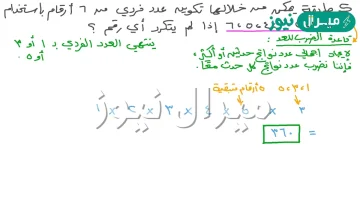 كم طريقة يمكن من خلالها تكوين عدد فردي من ٦ أرقام باستخدام
٦،٥،٤، إذا لم يتكرر أي رقم ؟
ميرال نيوز
قاعدة الضرب للعد:
ينتهي العدد الفردي بـ ١ أو ٣
أو ٥
لإيجاد إجمالي عدد نواتج حدثين أو أكثر،
فإننا نضرب عدد نواتج كل حدث معًا.
١،٣،٥
٥ أرقام متبقية
١ × ٢ × ٣ × ٤ × ٥ × ٣
= ٣٦٠
ميرال نيوز